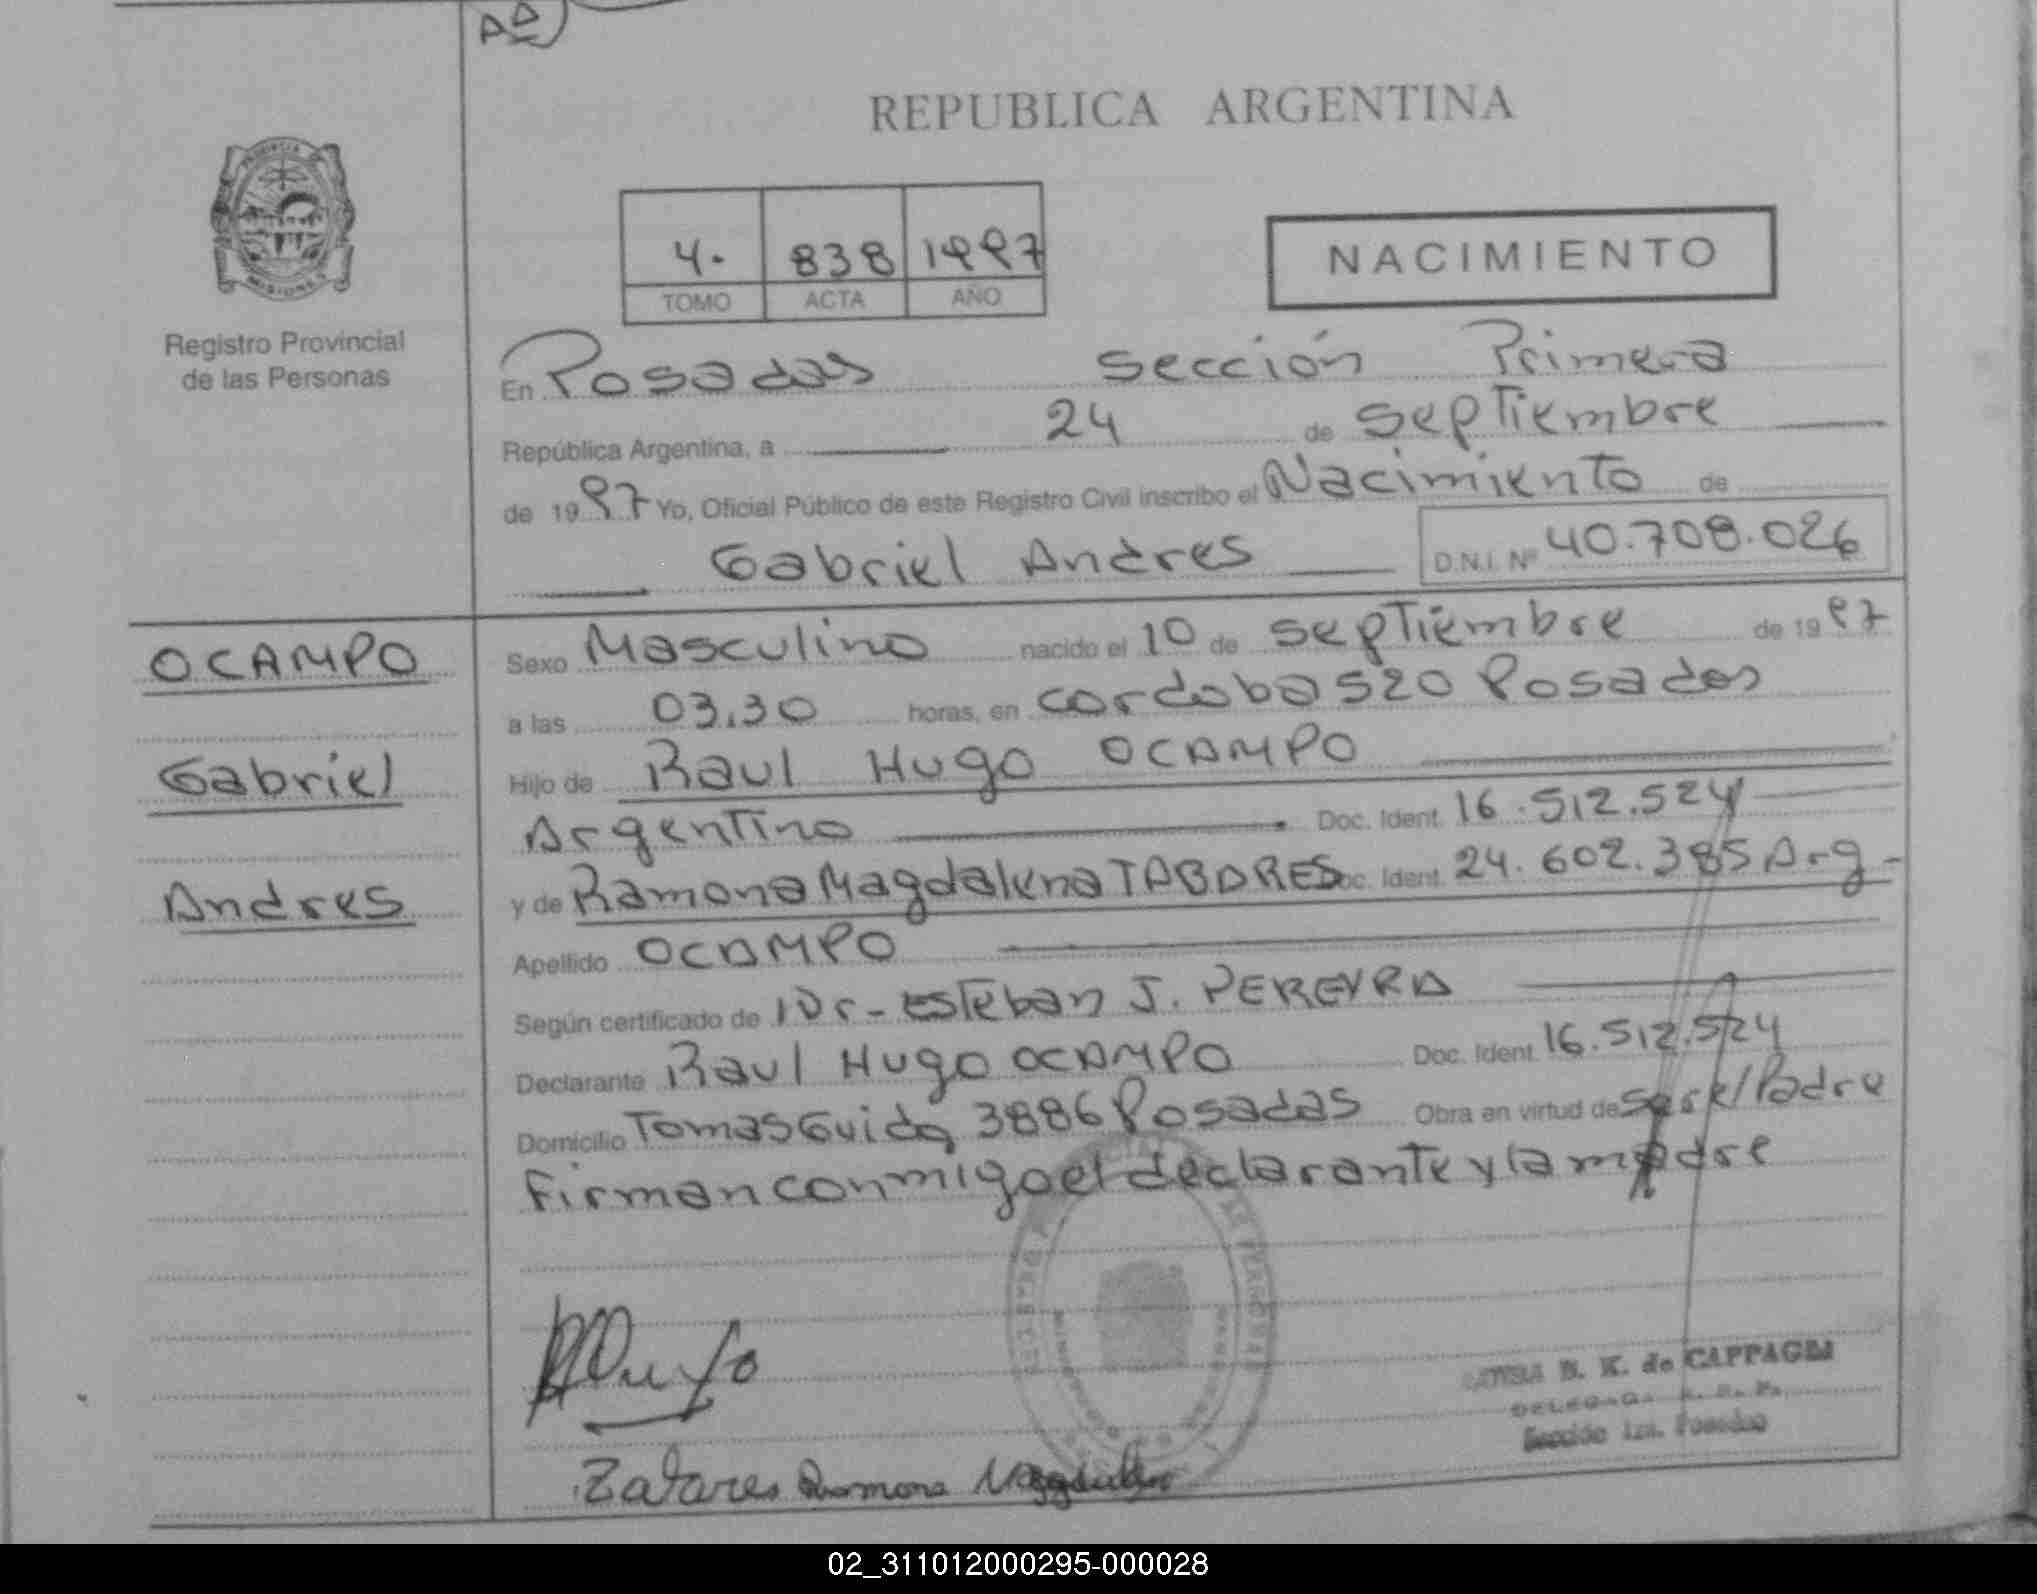 REPUBLICA ARGENTINA
4. 838 1997
TOMO ACTA AÑO
NACIMIENTO
Registro Provincial
de las Personas
En Posadas sección Primera
República Argentina, a 24 de septiembre
de 1997 Yo, Oficial Público de este Registro Civil inscribo el Nacimiento de
Gabriel Andres D.N.I. Nº 40.708.026
OCAMPO
Gabriel
Andres
Sexo Masculino nacido el 10 de septiembre de 1997
a las 03.30 horas, en cordoba 520 Posadas
Hijo de Raul Hugo OCAMPO
Argentino Doc. Ident. 16.512.524
y de Ramona Magdalena TABARES Doc. Ident. 24.602.385 Arg-
Apellido OCAMPO
Según certificado de Dr- Esteban J. PEREYRA
Declarante Raul Hugo OCAMPO Doc. Ident. 16.512.524
Domicilio Tomas Guido 3886 Posadas Obra en virtud de ser el Padre
Firman conmigo el declarante y la madre
B. K. de CAPPAGLI
Sección 1ra. Posadas
Ramona
02_311012000295-000028